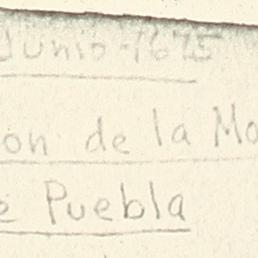 Junio-1675
on de la Mo
e Puebla